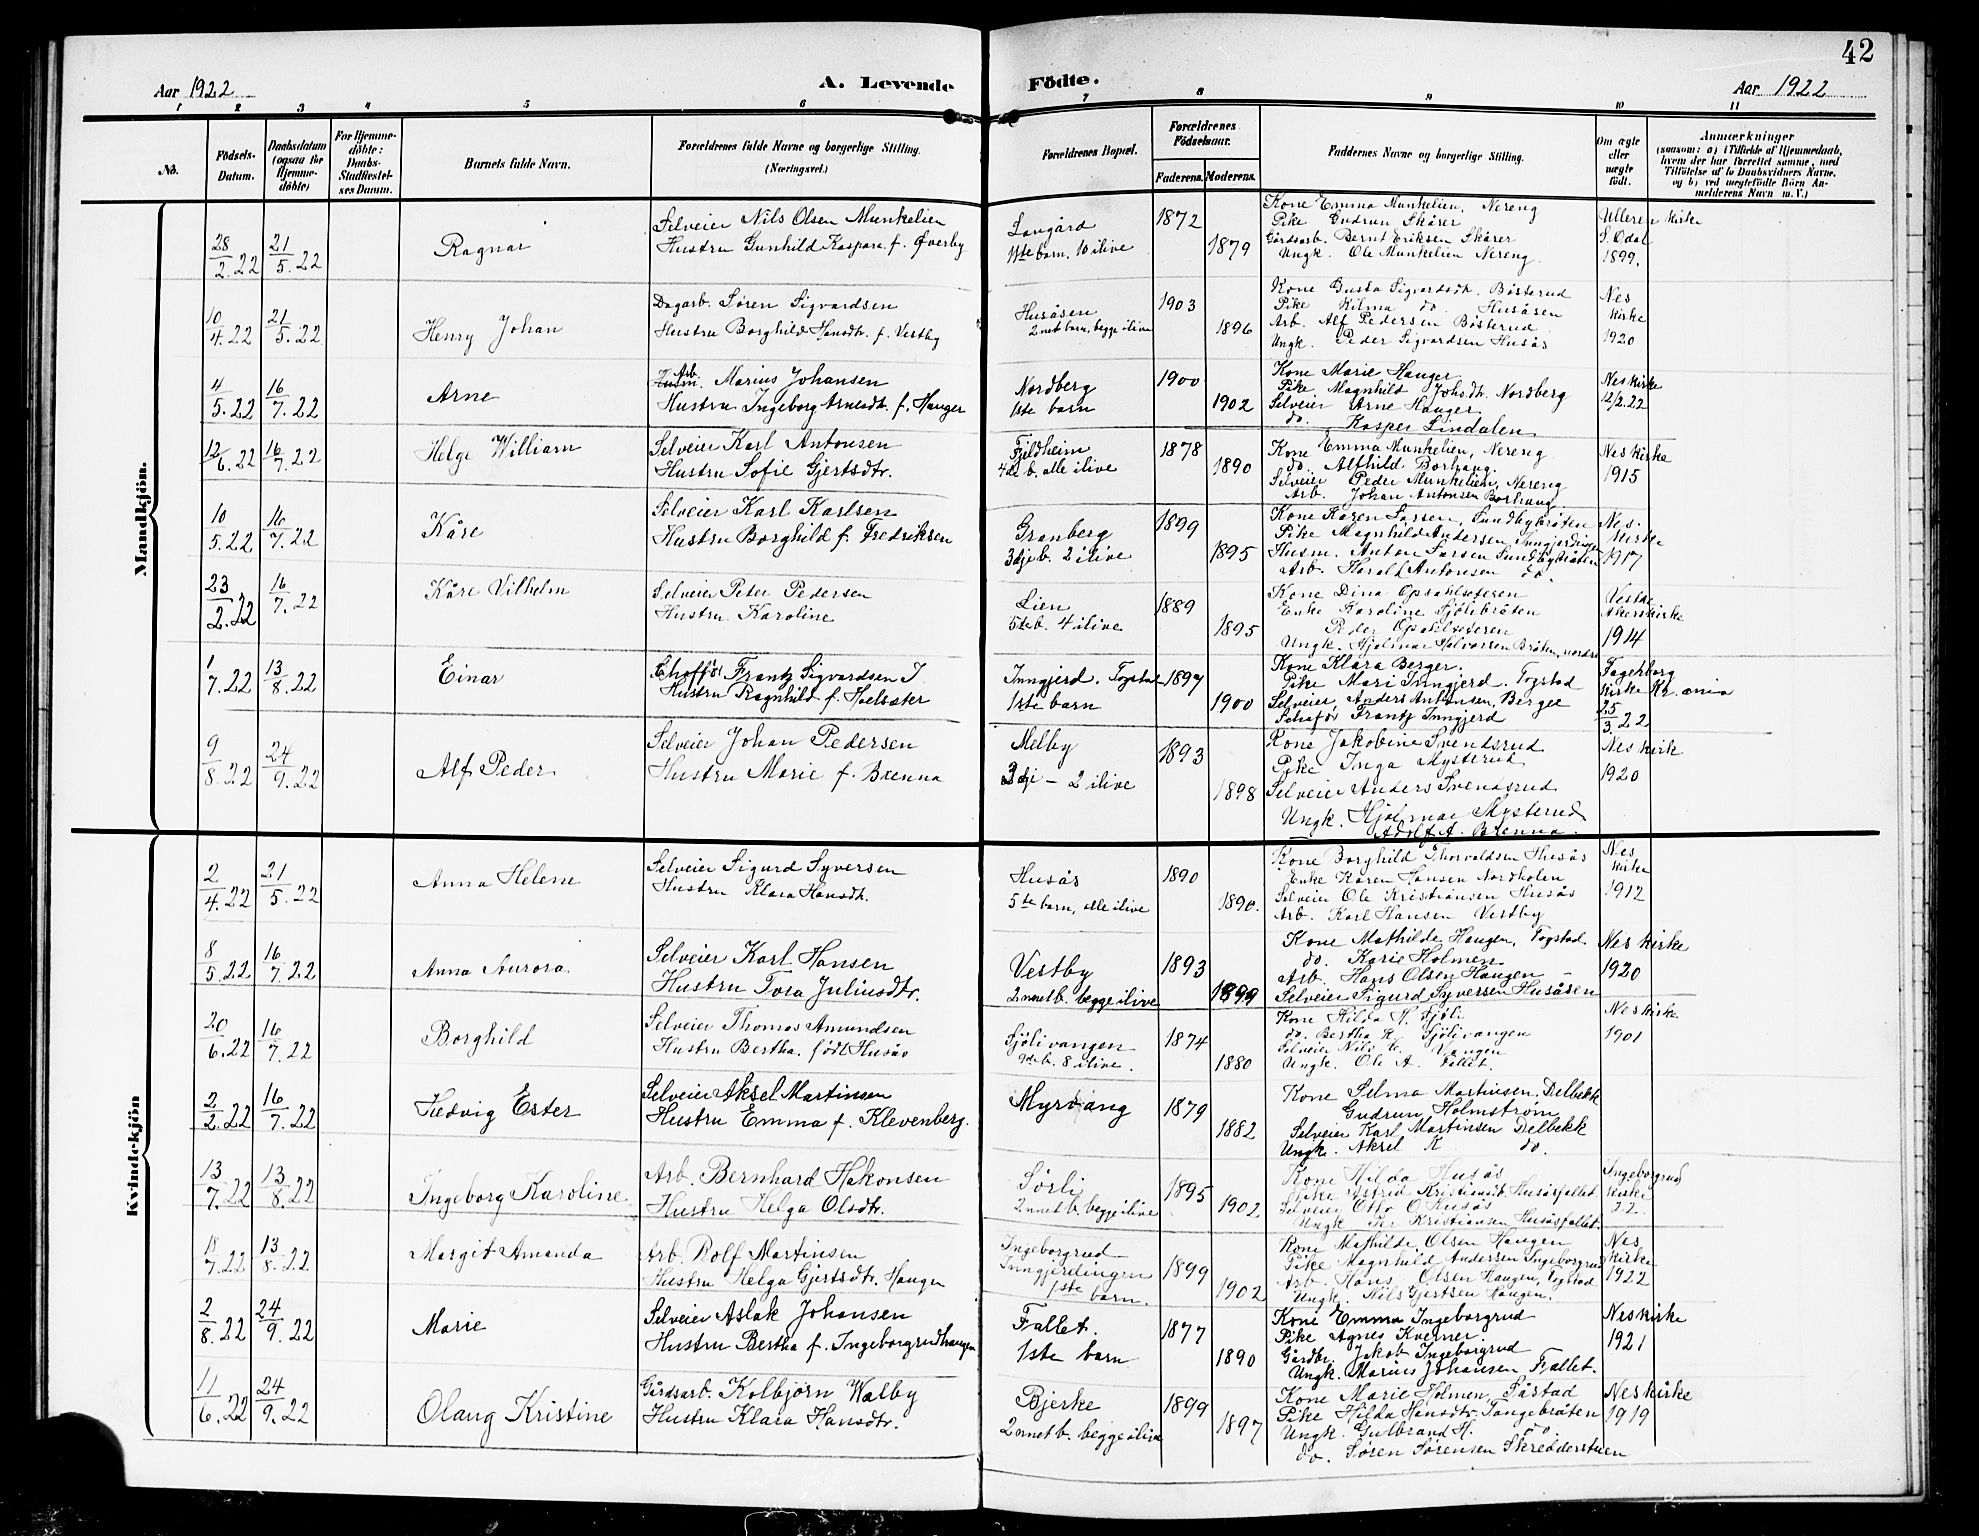 42
Aar 1922
A. Levende Födte.
Aar 1922
1 2 3 4 5 6 7 8 9 10 11
No.
Födsels-Datum.
Daabsdatum (ogsaa for Hjemmedöbte)
For Hjemmedöbte: Daabs-Stadfæstelses Datum.
Barnets fulde Navn.
Forældrenes fulde Navne og borgerlige Stilling. (Næringsvei.)
Forældrenes Bopæl.
Forældrenes Födselsaar.
Faderens. Moderens.
Faddernes Navne og borgerlige Stilling.
Om ægte eller uægte födt.
Anmærkninger
(saasom: a) i Tilfælde af Hjemmedaab, hvem der har forrettet samme, med Tilföielse af to Daabsvidners Navne, og b) ved uegtefödte Börn Anmelderens Navn m. V.)
Mandkjön.
28/2.22 21/5.22 Ragnar
Selveier Nils Olsen Munkelien
Hustru Gunhild Kaspara f. Øverby
Langård
11te barn, 10 ilive
1872 1879
Kone Emma Munkelien, Nereng
Pike Gudrun Skårer
Gårdsarb. Bernt Eriksen Skårer
Ungk. Ole Munkelien Nereng
Ulleren kirke
S. Odal
1899.
10/4.22 21/5.22 Henry Johan
Dagarb. Søren Sigvardsen
Hustru Borghild Hansdtr. f. Vestby
Husåsen
2net barn, begge ilive
1903 1896
Kone Gusta Sigvardsdt. Bösterud
Pike Hilma do. Husåsen
Arb. Alf Pedersen Bösterud
Ungk. Peder Sigvardsen Husås
Nes kirke
1920
4/5.22 16/7.22 Arne
Arb. Marius Johansen
Hustru Ingeborg Arnesdtr. f. Hauger
Nordberg
1ste barn
1900 1902
Kone Marie Hauger
Pike Magnhild Johsdt. Nordberg
Selveier Arne Hauger
do. Kasper Lindalen
Nes kirke
12/2.22
12/6.22 16/7.22 Helge William
Selveier Karl Antonsen
Hustru Sofie Gjertsdtr.
Fjeldheim
4de b. alle ilive
1878 1890
Kone Emma Munkelien, Nereng
do. Alfhild Borhaug.
Selveier Peder Munkelien, Nereng
Arb. Johan Antonsen Borhaug
Nes kirke
1915
10/5.22 16/7.22 Kåre
Selveier Karl Karlsen
Hustru Borghild f. Fredriksen
Granberg
3dje b. 2 ilive
1899 1895
Kone Karen Larsen, Sundbybråten
Pike Magnhild Andersen Inngjerdingen
Husm. Anton Larsen Sundbybråten
Arb. Harald Antonsen do.
Nes kirke
1917
23/2.22 16/7.22 Kåre Vilhelm
Selveier Peter Pedersen
Hustru Karoline
Lien
5te b. 4 ilive
1889 1895
Kone Dina Opsahlseteren
Enke Karoline Sjölibråten
Peder Opsahlseteren
Ungk. Hjalmar Halvorsen Bråten, nordre
Vestre Akerskirke
1914
1/7.22 13/8.22 Einar
Chofför Frantz Sigvardsen I
Hustru Ragnhild f. Hoelsæter
Inngjerd. Togstad
1ste barn
1897 1900
Kone Klara Berger.
Pike Mari Inngjerd. Togstad
Selveier, Anders Antonsen, Berger
Schafør Frantz Inngjerd
Fagerborg kirke Kr.ania
25/3 22
9/8.22 24/9.22 Alf Peder
Selveier Johan Pedersen
Hustru Marie f. Brenna
Melby
3dje - 2 ilive
1893 1898
Kone Jakobine Svendsrud
Pike Inga Mysterud
Selveier Anders Svendsrud
Ungk. Hjalmar Mysterud
Adolf A. Brenna.
Nes kirk
1920
Kvinde-kjön
2/4.22 21/5.22 Anna Helene
Selveier Sigurd Syversen
Hustru Klara Hansdt.
Husås
5te barn, alle ilive
1890 1890.
Kone Borghild Thorvaldsen Husås
Enke Karen Hansen Nordholen
Selveier Ole Kristiansen Husås
Arb. Karl Hansen Vestby
Nes kirke
1912
8/5.22 16/7.22 Anna Aurora
Selveier Karl Hansen
Hustru Tora Juliusdtr.
Vestby
2net b. begge ilive
1893 1899
Kone Mathilde Haugen, Togstad
do. Karie Holmen
Arb. Hans Olsen Haugen
Selveier Sigurd Syversen Husåsen
Nes kirke
1920
20/6.22 16/7.22 Borghild
Selveier Thomas Amundsen
Hustru Bertha. født Husås
Sjölivangen
9de b. 8 ilive.
1874 1880
Kone Hilda H. Sjöli
do. Bertha K. Sjölivangen
Selveier Nils Vangen
Ungk. Ole A. Fallet.
Nes kirke
1901
2/2.22 16/7.22 Hedvig Ester
Selveier Aksel Martinsen
Hustru Emma f. Klevenberg.
Myrvang
1879 1882
Kone Selma Martinsen. Delbekk
Gudrun Holmstrøm
Selveier Karl Martinsen Delbekk
Ungk. Aksel K do.
13/7.22 13/8.22 Ingeborg Karoline
Arb. Bernhard Hakonsen
Hustru Helga Olsdtr.
Sörli
2net b. begge ilive
1895 1902
Kone Hilda Husås
Pike Astrid Kristiansdt. Husåsfallet.
Selveier Otto O Husås
Ungk. Per Kristiansen Husåsfallet.
Ingeborgrud kirke
22.
18/7.22 13/8.22 Margit Amanda
Arb. Rolf Martinsen
Hustru Helga Gjertsdtr. Haugen
Ingeborgrud
Inngjerdingen
1ste barn.
1899 1902
Kone Mathilde Olsen Haugen
Pike Magnhild Andersen Ingeborgrud
Arb. Hans Olsen Haugen, Togstad
Ungk. Nils Gjertsen Haugen.
Nes kirke
1922
2/8.22 24/9.22 Marie
Selveier Aslak Johansen
Hustru Bertha f. Ingeborgrudhaugen
Fallet.
1ste barn
1877 1890
Kone Emma Ingeborgrud
Pike Agnes Kverner.
Gårdbr. Jakob Ingeborgrud
Ungk. Marius Johansen Fallet.
Nes kirke
1921
11/6.22 24/9.22 Olaug Kristine
Gårdsarb. Kolbjørn Walby
Hustru Klara Hansdtr.
Bjerke
2net b. begge ilive
1899 1897
Kone Marie Holmen, Fårstad
Pike Hilda Hansdtr. Tangebråten
Ungk. Gulbrand H. do.
do. Søren Sørensen Skredderstuen
Nes kirke
1919